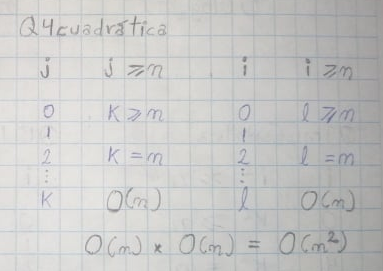 Q4cuadrática
j j ≥ n i i ≥ n
0 K ≥ n 0 l ≥ n
1 1
2 K = n 2 l = n
⋮ ⋮
K O(n) l O(n)
O(n) × O(n) = O(n²)